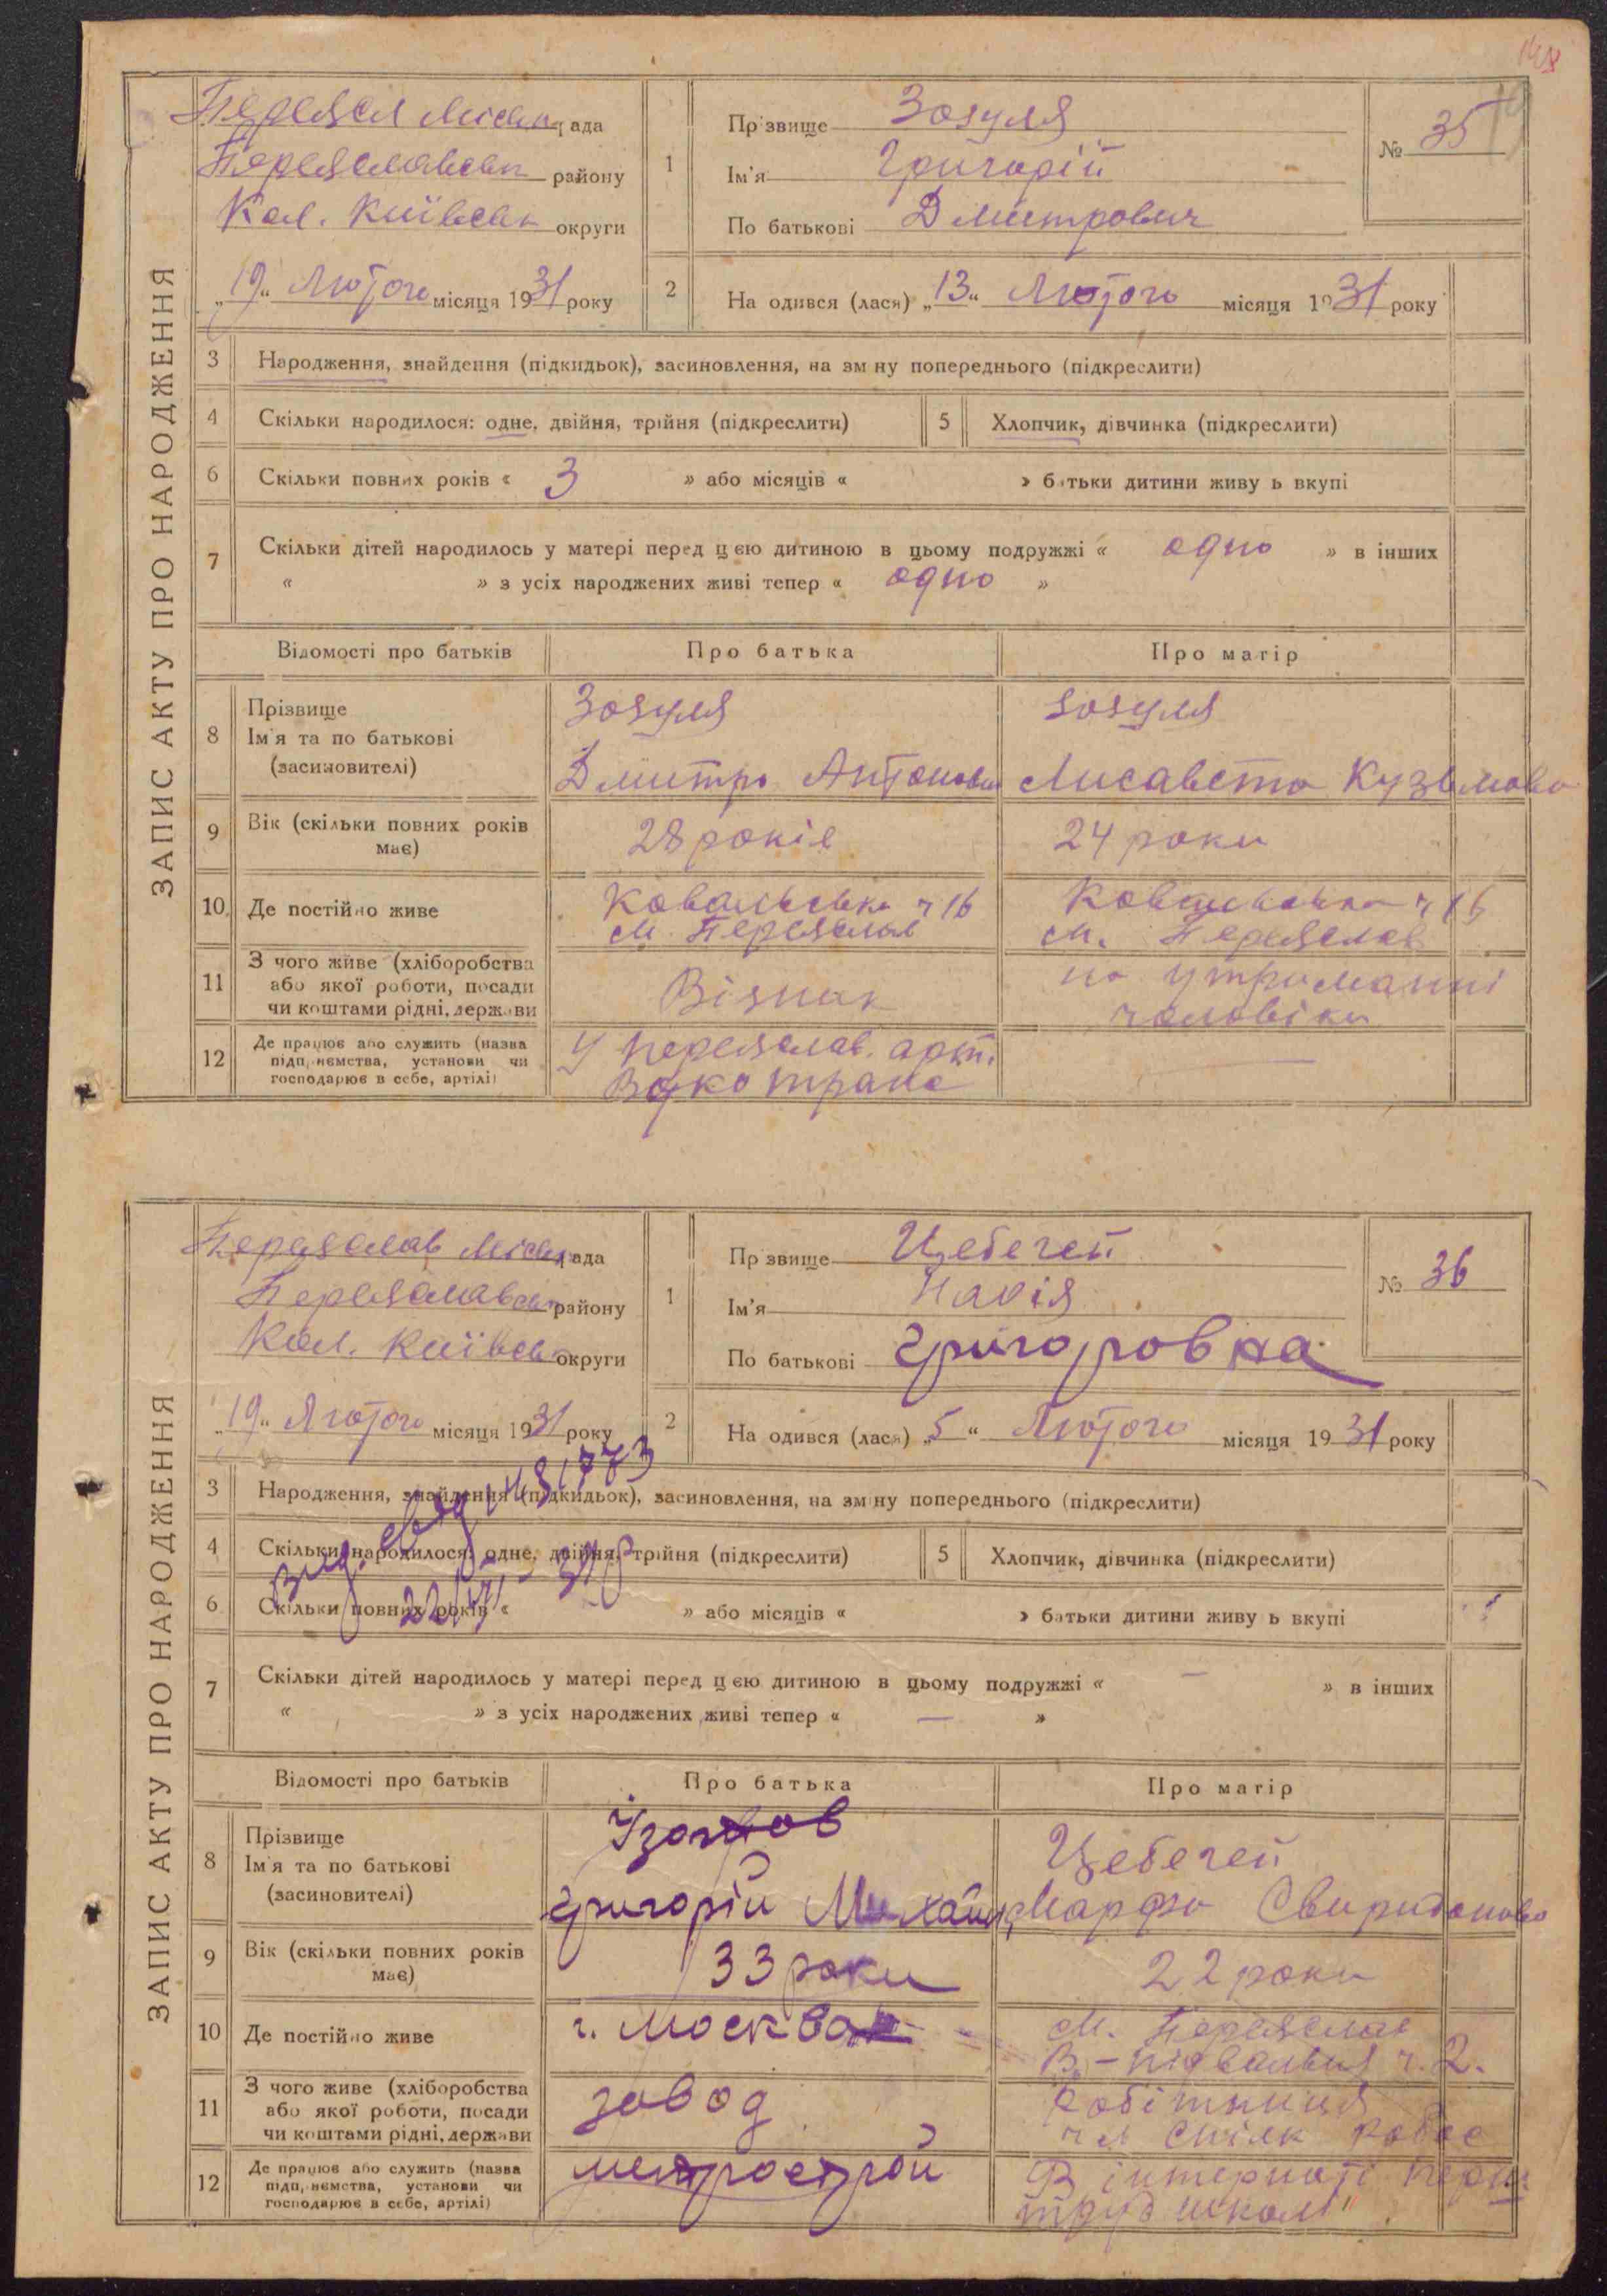 ЗАПИС АКТУ ПРО НАРОДЖЕННЯ
Переясл Міськ рада
Переяславськ району
Кол. Київськ округи
„19“ Лютого місяця 1931 року
1
Прізвище Зозуля
Ім'я Григорій
По батькові Дмитрович
№ 35
2
На одився (лася) „13“ Лютого місяця 1931 року
3 Народження, знайдення (підкидьок), засиновлення, на зміну попереднього (підкреслити)
4 Скільки народилося: одне, двійня, трійня (підкреслити) 5 Хлопчик, дівчинка (підкреслити)
6 Скільки повних років « 3 » або місяців « » батьки дитини живуть вкупі
7 Скільки дітей народилось у матері перед цією дитиною в цьому подружжі « одно » в інших
« » з усіх народжених живі тепер « одно »
Відомості про батьків Про батька Про матір
8 Прізвище
Ім'я та по батькові
(засиновителі)
Зозуля
Дмитро Антонович
Зозуля
Лисавета Кузьмовна
9 Вік (скільки повних років
має)
28 років
24 роки
10 Де постійно живе
Ковальська ч 16
м. Переяслав
Ковальська ч 16
м. Переяслав
11 З чого живе (хліборобства
або якої роботи, посади
чи коштами рідні, держави
Візник
на утриманні
чоловіка
12 Де працює або служить (назва
підприємства, установи чи
господарює в себе, артілі)
У переяслав. арт.
—
ЗАПИС АКТУ ПРО НАРОДЖЕННЯ
Переяслав Міськ рада
Переяславськ району
Кол. Київськ округи
„19“ Лютого місяця 1931 року
1
Прізвище Цебегей
Ім'я Надія
По батькові Григоровна
№ 36
2
На одився (лася) „5“ Лютого місяця 1931 року
3 Народження, знайдення (підкидьок), засиновлення, на зміну попереднього (підкреслити)
4 Скільки народилося: одне, двійня, трійня (підкреслити) 5 Хлопчик, дівчинка (підкреслити)
6 Скільки повних років « » або місяців « » батьки дитини живуть вкупі
7 Скільки дітей народилось у матері перед цією дитиною в цьому подружжі « — » в інших
« » з усіх народжених живі тепер « — »
Відомості про батьків Про батька Про матір
8 Прізвище
Ім'я та по батькові
(засиновителі)
Григорій Михайл
Цебегей
Марфа Свиридоновна
9 Вік (скільки повних років
має)
33 роки
22 роки
10 Де постійно живе
г. Москва
м. Переяслав
В-підвальна ч. 2.
11 З чого живе (хліборобства
або якої роботи, посади
чи коштами рідні, держави
завод
Робітниця
чл спілк робос
12 Де працює або служить (назва
підприємства, установи чи
господарює в себе, артілі)
метрострой
В інтернаті Перш
труд школі